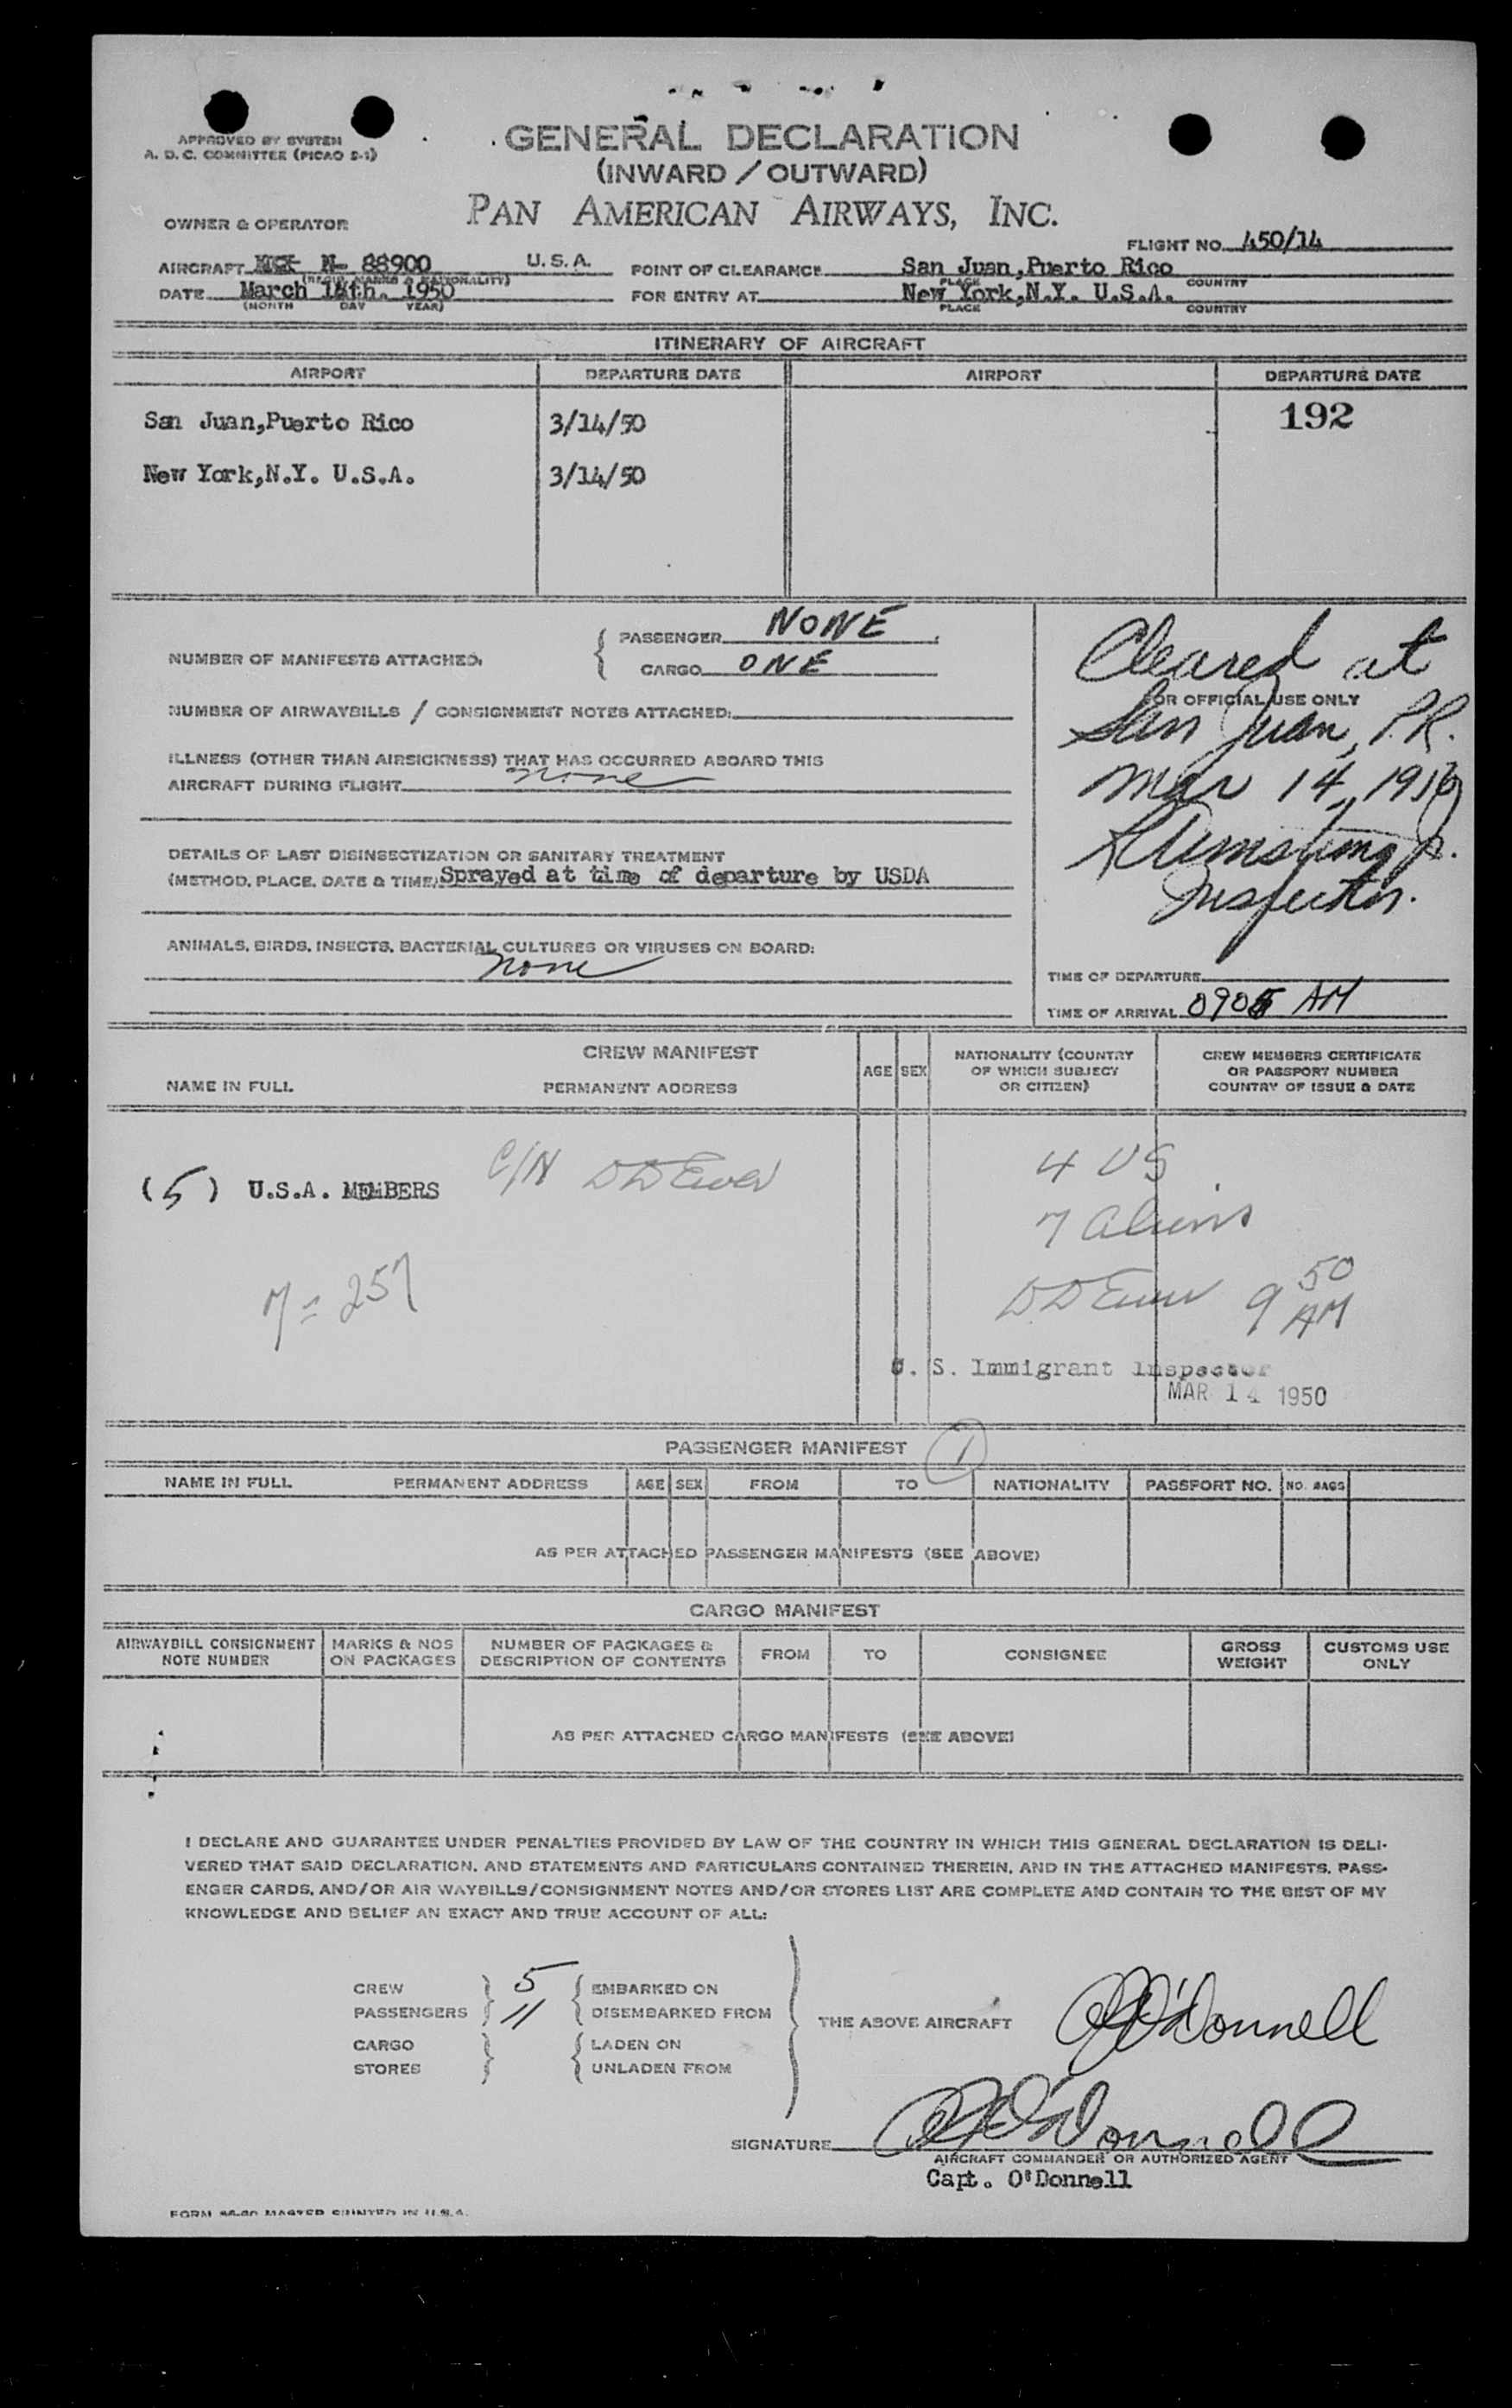 APPROVED BY SYSTEM
A. D. C. COMMITTEE (PICAO S-1)
GENERAL DECLARATION
(INWARD / OUTWARD)
PAN AMERICAN AIRWAYS, INC.
OWNER & OPERATOR
FLIGHT NO. 450/14
AIRCRAFT N- 88900 U.S.A.
(REGIS. MARKS & NATIONALITY)
POINT OF CLEARANCE San Juan,Puerto Rico
PLACE COUNTRY
DATE March 14th. 1950
(MONTH DAY YEAR)
FOR ENTRY AT New York,N.Y. U.S.A.
PLACE COUNTRY
ITINERARY OF AIRCRAFT
AIRPORT DEPARTURE DATE AIRPORT DEPARTURE DATE
192
San Juan,Puerto Rico 3/14/50
New York,N.Y. U.S.A. 3/14/50
NUMBER OF MANIFESTS ATTACHED:
PASSENGER NONE
CARGO ONE
NUMBER OF AIRWAYBILLS / CONSIGNMENT NOTES ATTACHED:
ILLNESS (OTHER THAN AIRSICKNESS) THAT HAS OCCURRED ABOARD THIS
AIRCRAFT DURING FLIGHT none
DETAILS OF LAST DISINSECTIZATION OR SANITARY TREATMENT
(METHOD, PLACE, DATE & TIME) Sprayed at time of departure by USDA
ANIMALS, BIRDS, INSECTS, BACTERIAL CULTURES OR VIRUSES ON BOARD:
none
Cleared at
FOR OFFICIAL USE ONLY
San Juan, P.R.
Mar 14, 1950
Inspector.
TIME OF DEPARTURE
TIME OF ARRIVAL 0905 AM
CREW MANIFEST
NAME IN FULL PERMANENT ADDRESS
AGE SEX
NATIONALITY (COUNTRY
OF WHICH SUBJECT
OR CITIZEN)
CREW MEMBERS CERTIFICATE
OR PASSPORT NUMBER
COUNTRY OF ISSUE & DATE
(5) U.S.A. MEMBERS
C/N
4 US
7 aliens
7 = 257
9 50
AM
U. S. Immigrant Inspector
MAR 14 1950
PASSENGER MANIFEST 1
NAME IN FULL PERMANENT ADDRESS AGE SEX FROM TO NATIONALITY PASSPORT NO. NO. BAGS
AS PER ATTACHED PASSENGER MANIFESTS (SEE ABOVE)
CARGO MANIFEST
AIRWAYBILL CONSIGNMENT
NOTE NUMBER
MARKS & NOS
ON PACKAGES
NUMBER OF PACKAGES &
DESCRIPTION OF CONTENTS
FROM TO CONSIGNEE
GROSS
WEIGHT
CUSTOMS USE
ONLY
AS PER ATTACHED CARGO MANIFESTS (SEE ABOVE)
I DECLARE AND GUARANTEE UNDER PENALTIES PROVIDED BY LAW OF THE COUNTRY IN WHICH THIS GENERAL DECLARATION IS DELI-
VERED THAT SAID DECLARATION, AND STATEMENTS AND PARTICULARS CONTAINED THEREIN, AND IN THE ATTACHED MANIFESTS, PASS-
ENGER CARDS, AND/OR AIR WAYBILLS/CONSIGNMENT NOTES AND/OR STORES LIST ARE COMPLETE AND CONTAIN TO THE BEST OF MY
KNOWLEDGE AND BELIEF AN EXACT AND TRUE ACCOUNT OF ALL:
CREW 5 EMBARKED ON
PASSENGERS 11 DISEMBARKED FROM
THE ABOVE AIRCRAFT O'Donnell
CARGO LADEN ON
STORES UNLADEN FROM
SIGNATURE O'Donnell
AIRCRAFT COMMANDER OR AUTHORIZED AGENT
Capt. O'Donnell
FORM MASTER PRINTED IN U.S.A.